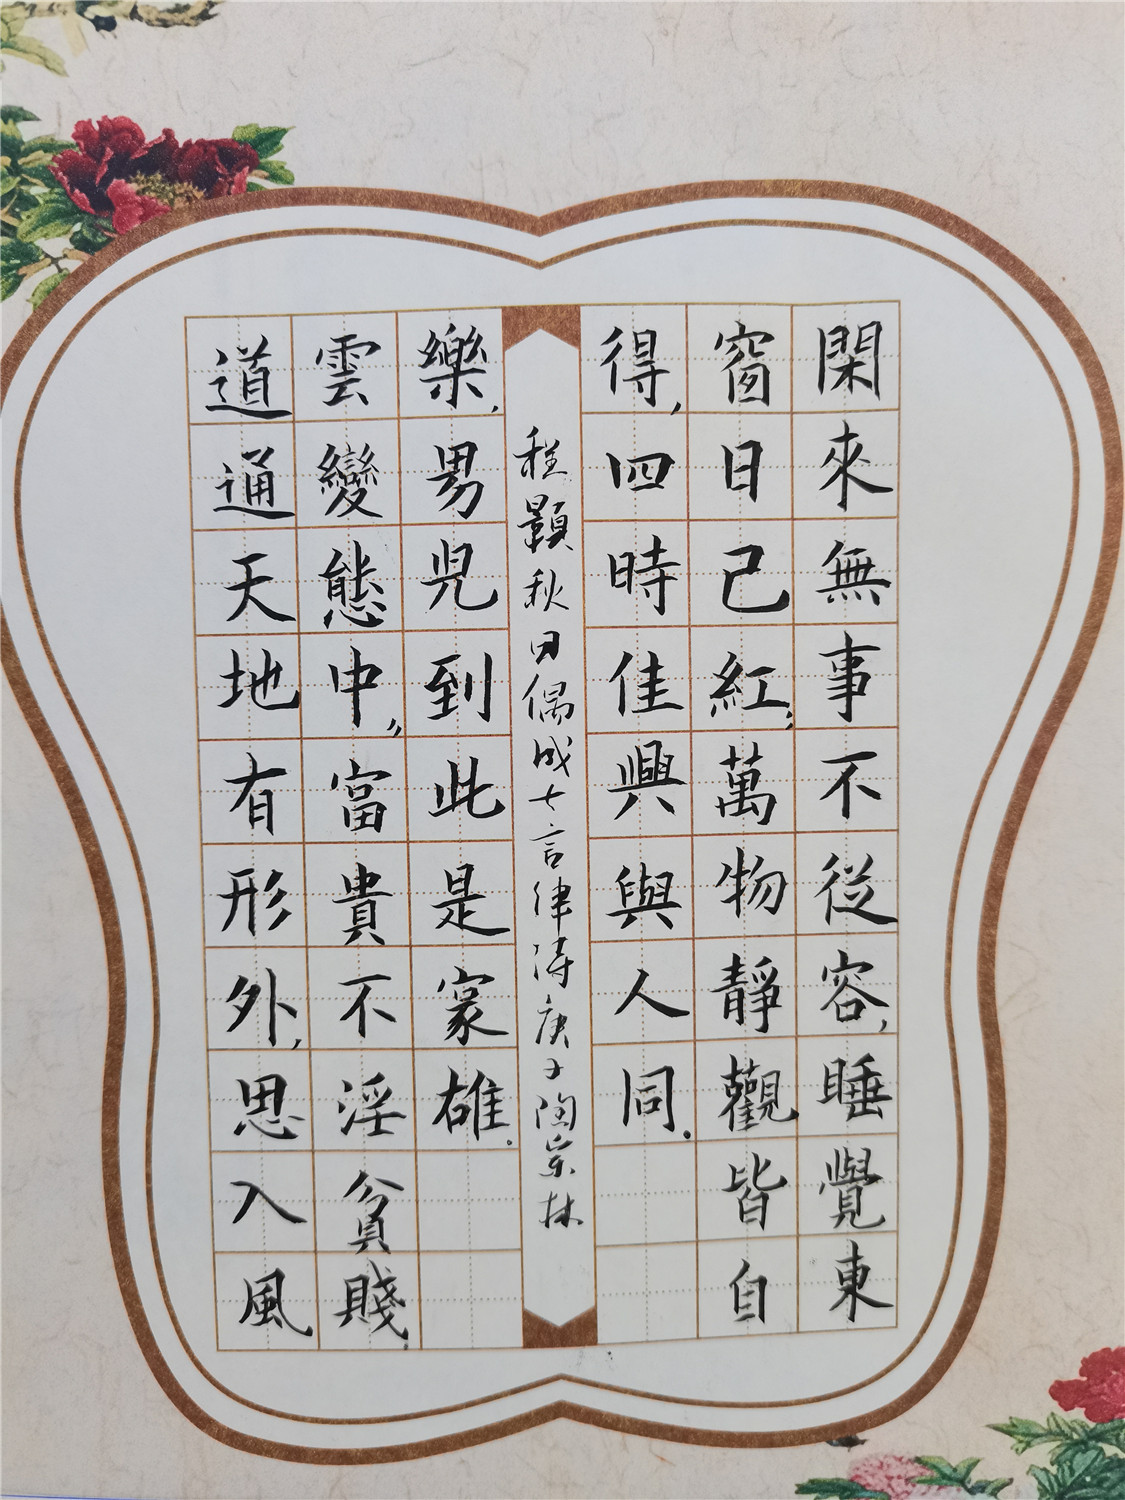 閑來無事不從容,睡覺東
窗日已紅;萬物靜觀皆自
得,四時佳興與人同.
道通天地有形外,思入風
雲變態中,,富貴不淫貧賤,
樂,男兒到此是豪雄。
程顥秋日偶成七言律詩庚子陶宗林